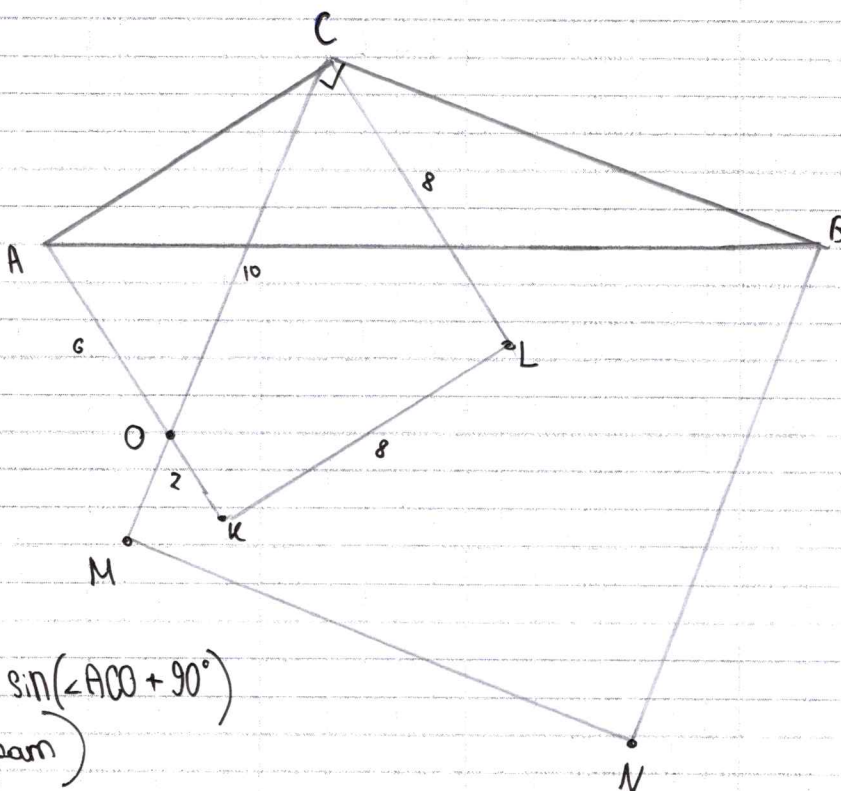 C
8
A
B
10
6
L
O
8
2
K
M
sin(∠ACO + 90°)
N